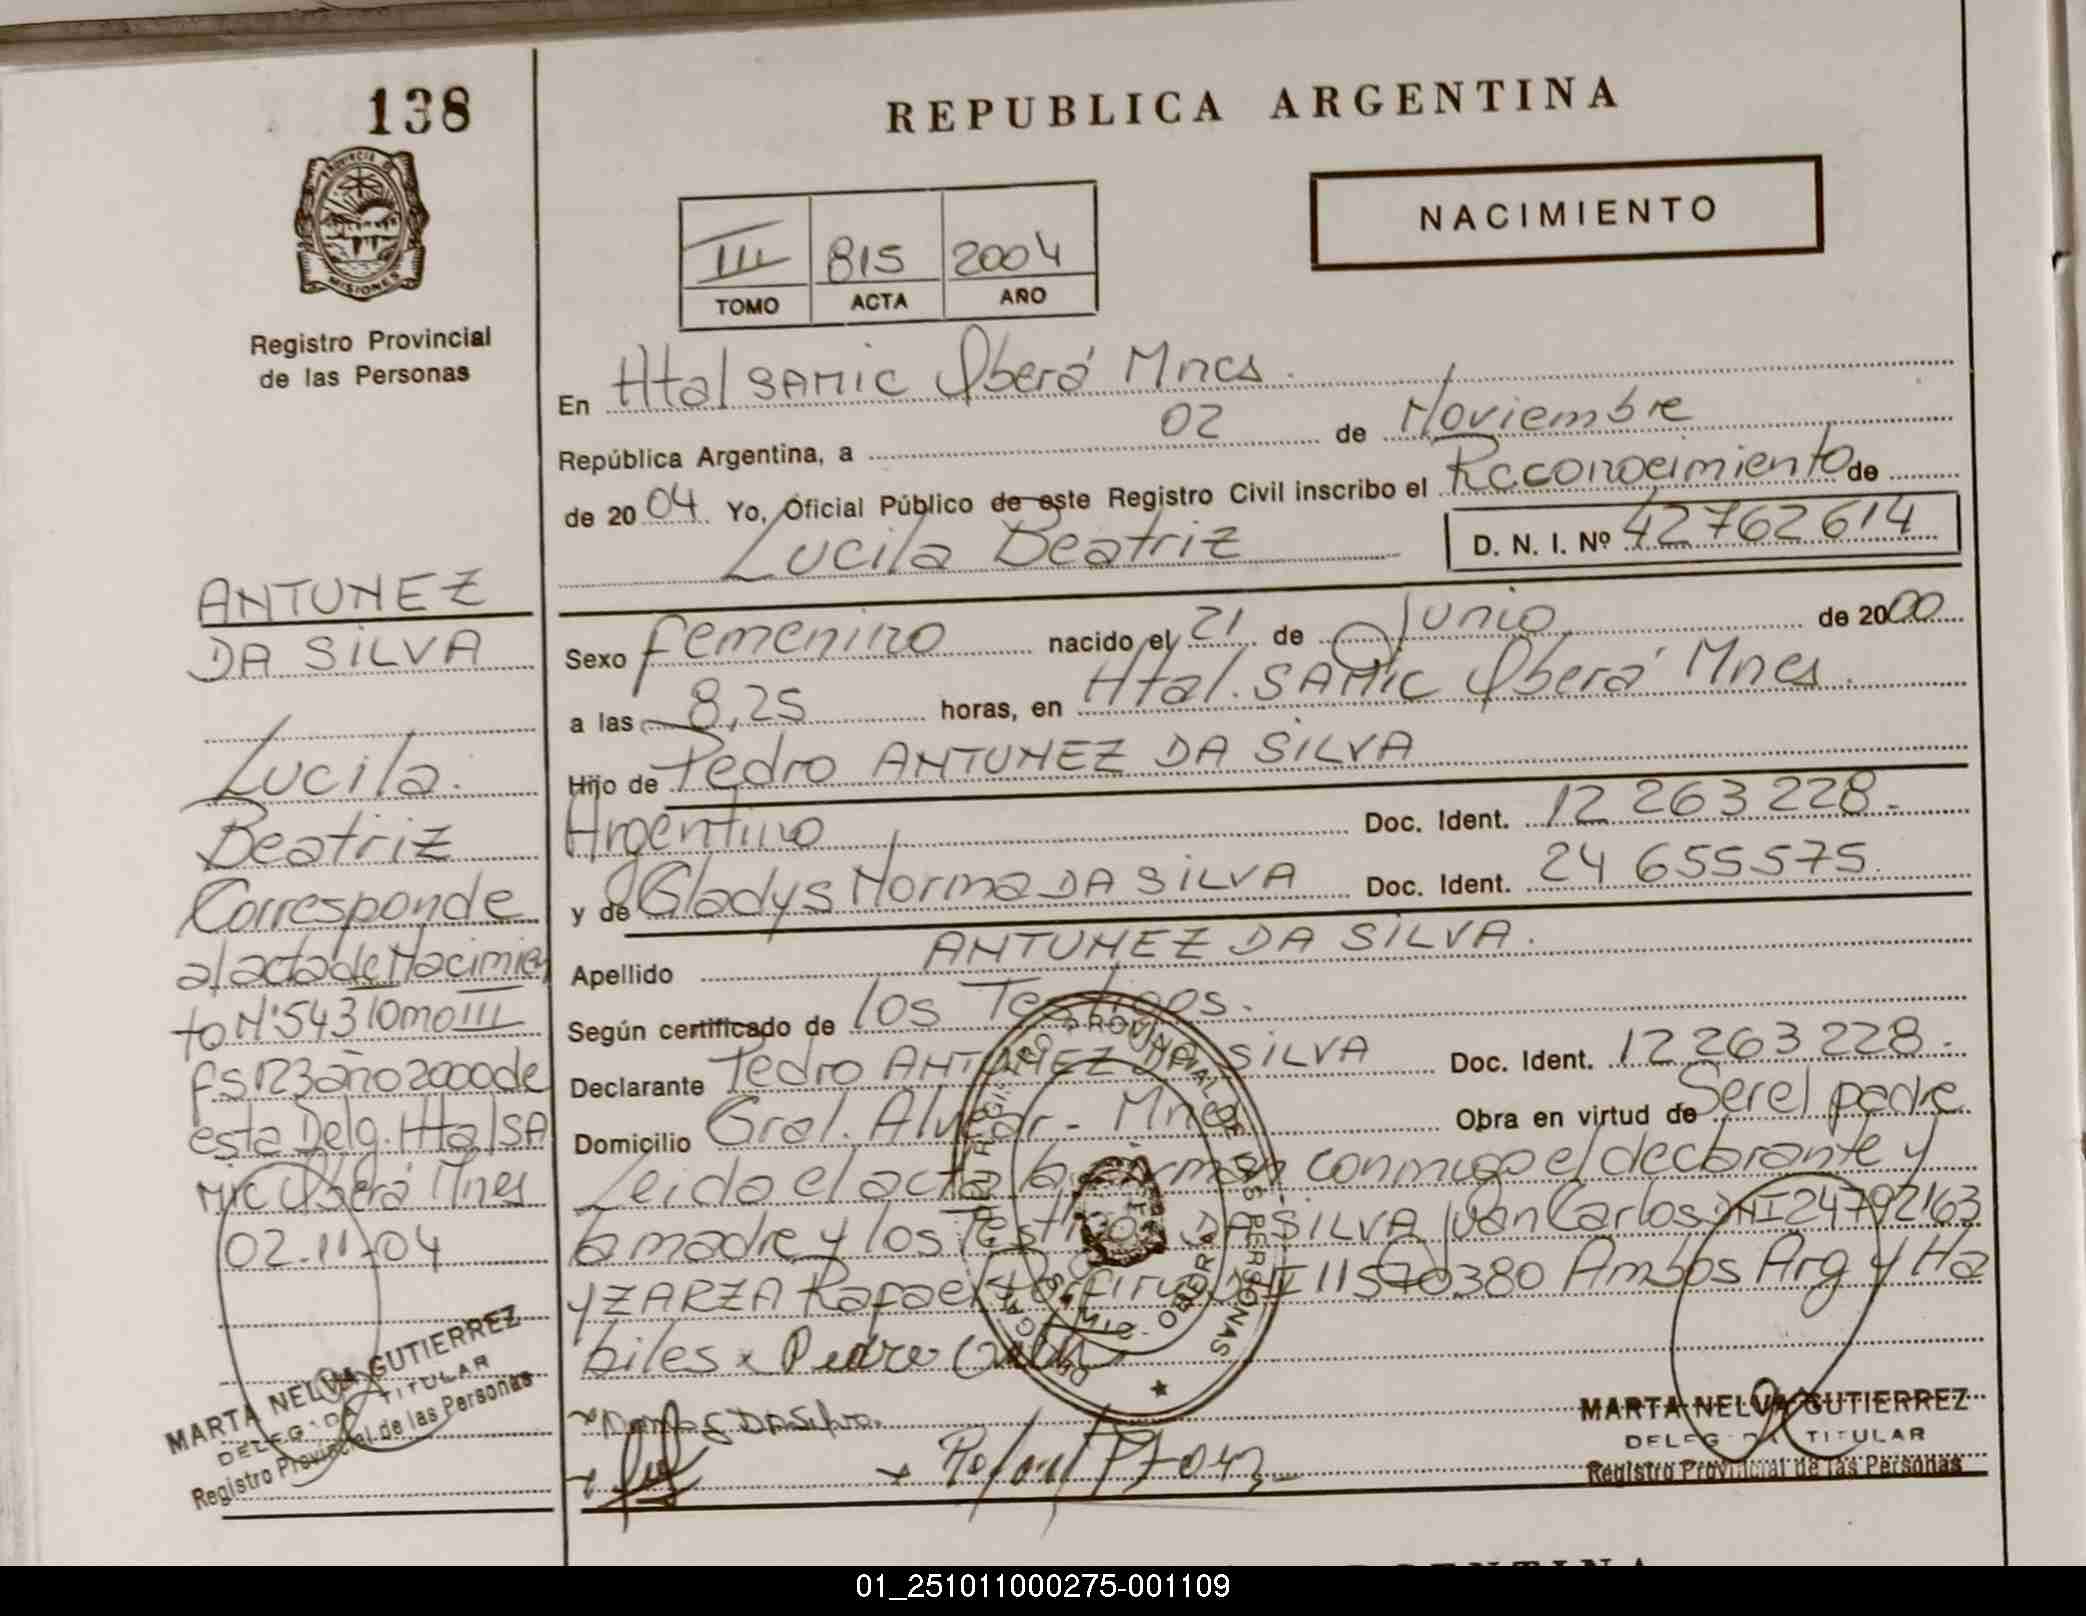 138
REPUBLICA ARGENTINA
PROVINCIA DE
MISIONES
Registro Provincial
de las Personas
NACIMIENTO
III 815 2004
TOMO ACTA AÑO
En Htal SAMIC Oberá Mnes.
República Argentina, a 02 de Noviembre
de 2004 Yo, Oficial Público de este Registro Civil inscribo el Reconocimiento de
Lucila Beatriz D. N. I. Nº 42762614
Sexo femenino nacido el 21 de Junio de 2000
a las 8,25 horas, en Htal. SAMIC Oberá Mnes.
Hijo de Pedro ANTUNEZ DA SILVA
Argentino Doc. Ident. 12 263 228.-
y de Gladys Norma DA SILVA Doc. Ident. 24 655575.
Apellido ANTUNEZ DA SILVA.
Según certificado de los Testigos.
Declarante Pedro ANTUNEZ DA SILVA Doc. Ident. 12 263 228.
Domicilio Gral. Alvear - Mnes Obra en virtud de Ser el padre
Leida el acta la firman conmigo el declarante y
la madre y los Testigos DA SILVA Juan Carlos DNI 24792163
y ZARZA Rafael Porfirio DNI 11570380 Ambos Arg y Ha
biles x Pedro
DA Silva
MARTA NELVA GUTIERREZ
DELEGADA TITULAR
Registro Provincial de las Personas
ANTUNEZ
DA SILVA
Lucila
Beatriz
Corresponde
al acta de Nacimien
to Nº 543 Tomo III
Fs 123 año 2000 de
esta Delg. Htal SA
MIC Oberá Mnes
02-11-04
MARTA NELVA GUTIERREZ
DELEGADA TITULAR
Registro Provincial de las Personas
01_251011000275-001109